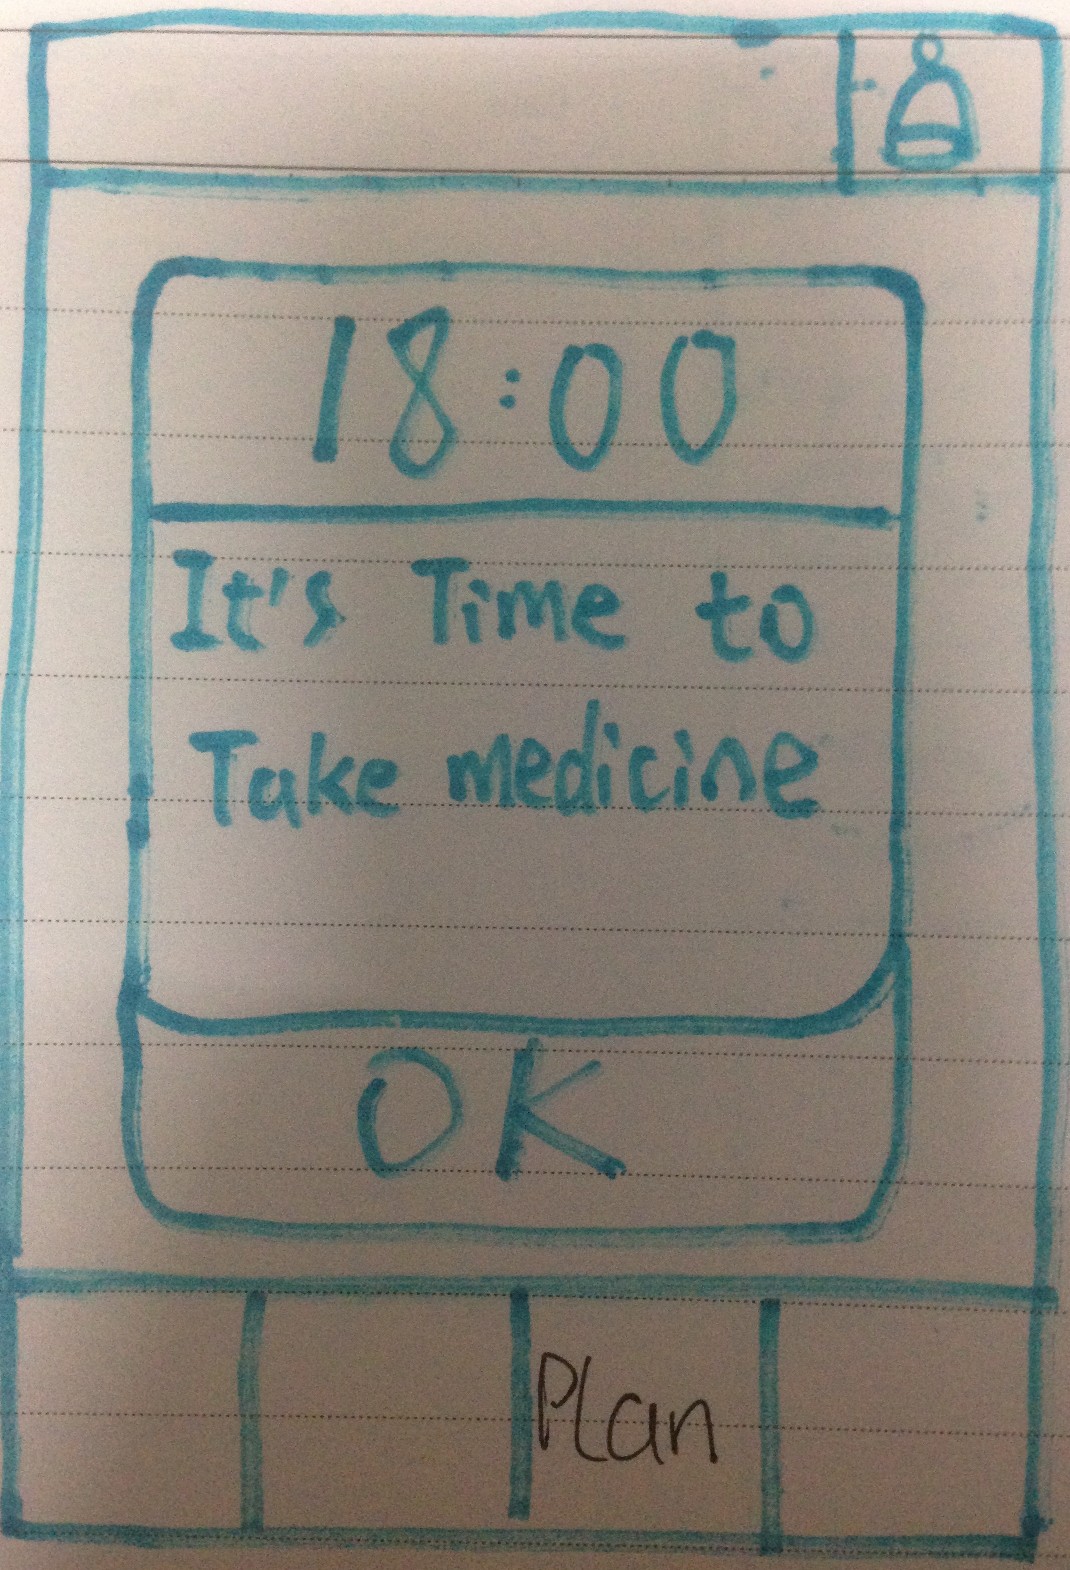 18:00
It's Time to
Take medicine
OK
Plan